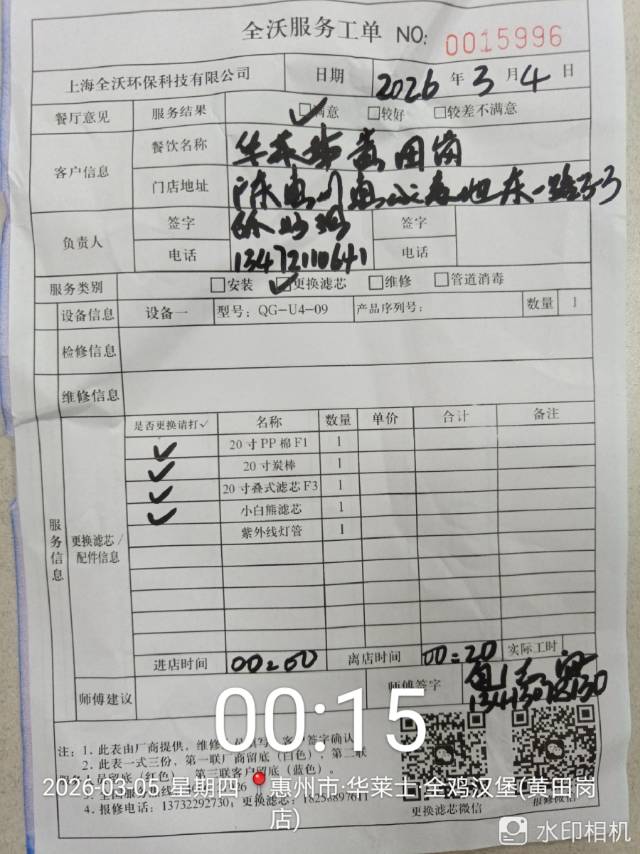 全沃服务工单 NO: 0015996
上海全沃环保科技有限公司 日期 2026年3月4日
餐厅意见 服务结果 ☑满意 □较好 □较差不满意
客户信息 餐饮名称 华莱士黄田岗
门店地址 东一路33
负责人 签字 签字
电话 13472110641 电话
服务类别 □安装 ☑更换滤芯 □维修 □管道消毒
设备信息 设备一 型号: QG-U4-09 产品序列号: 数量 1
检修信息
维修信息
服务信息 更换滤芯/配件信息
是否更换请打✓ 名称 数量 单价 合计 备注
✓ 20寸PP棉F1 1
✓ 20寸炭棒 1
✓ 20寸叠式滤芯F3 1
✓ 小白熊滤芯 1
紫外线灯管 1
进店时间 00:00 离店时间 00:20 实际工时
师傅建议 师傅签字
00:15
注: 1. 此表由厂商提供, 维修 客户签字确认
2. 此表一式三份, 第一联厂商留底(白色), 第二联
留底(红色) 第三联客户留底(蓝色)。
4. 报修电话: 13732292730, 更换滤芯:
更换滤芯微信 报修微信
2026-03-05 星期四 惠州市·华莱士·全鸡汉堡(黄田岗店)
水印相机